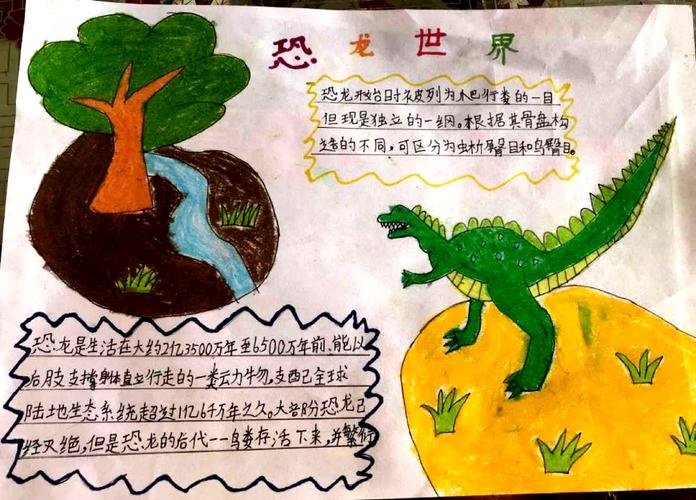 恐龙世界
恐龙开始时被列为爬巴行类的一目
但现是独立的一纲。根据其骨盘构
造的不同。可区分为虫析臀目和鸟臀目。
恐龙是生活在大约2亿3500万年至6500万年前、能以
后肢支撑身体直立行走的一类动力牛物。支配全球
陆地生态系统超过1亿6千万年之久。大部份恐龙已
经灭绝,但是恐龙的后代一一鸟类存活下来,并繁衍